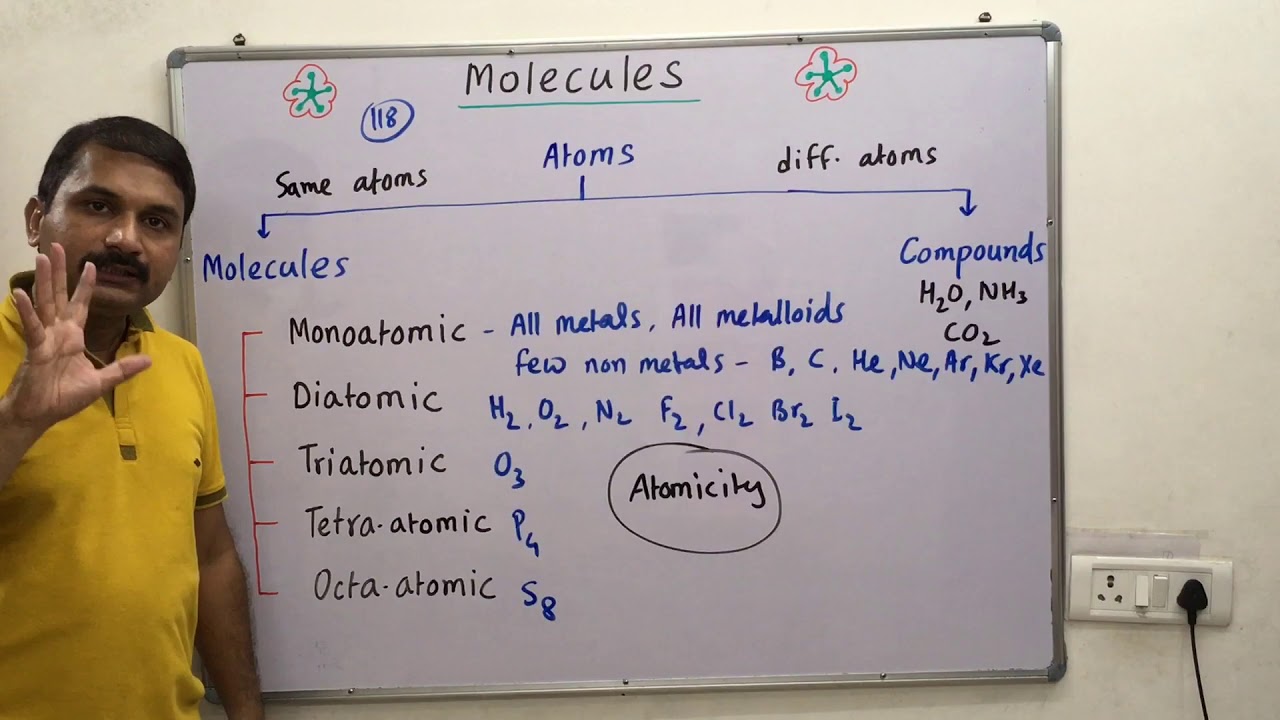 Molecules
118
Atoms
Same atoms
diff. atoms
Molecules
Compounds
H₂O, NH₃
CO₂
Monoatomic - All metals, All metalloids
few non metals - B, C, He, Ne, Ar, Kr, Xe
Diatomic H₂, O₂, N₂ F₂, Cl₂ Br₂ I₂
Triatomic O₃
Atomicity
Tetra-atomic P₄
Octa-atomic S₈